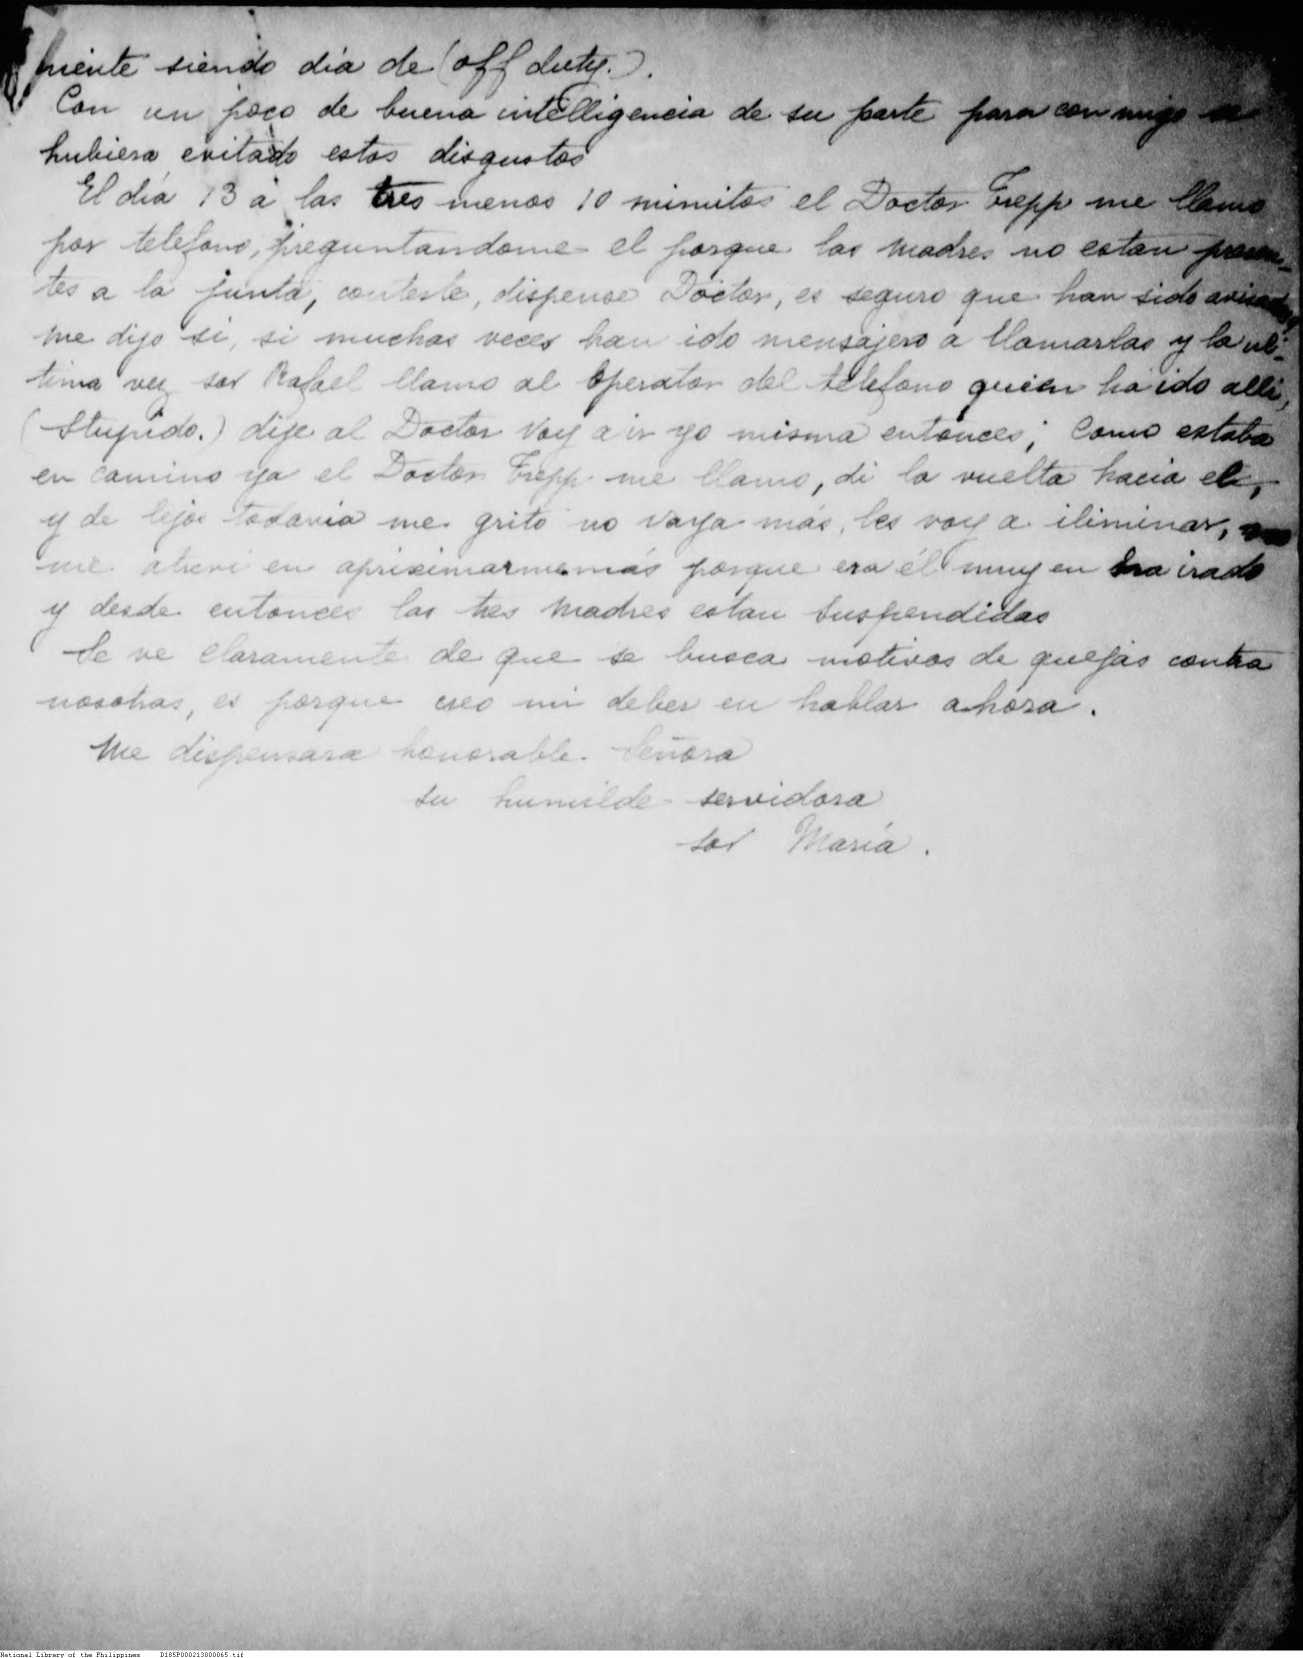 mente siendo dia de (off duty.).
Con un poco de buena intelligencia de su parte para con migo se
hubiera evitado estos disgustos
El día 13 a las tres menos 10 minutos el Doctor Trepp me llamo
por telefono, preguntandome el porque las Madres no estan presen-
tes a la junta, conteste, dispense Doctor, es seguro que han sido avisadas
me dijo si, si muchas veces han ido mensajero a llamarlas y la ul-
tima vez sor Rafael llamo al Operator del telefono quien ha ido alli,
(Stupido.) dije al Doctor Voy a ir yo misma entonces; Como estaba
en camino ya el Doctor Trepp me llamo, di la vuelta hacia el,
y de lejos todavia me grito no vaya más, les voy a iliminar,
me atrevi en aprixinarme más porque era él muy en irado
y desde entonces las tres Madres estan Suspendidas
Se ve claramente de que se busca motivos de quejas contra
nosotras, es porque creo mi deber en hablar ahora.
Me dispensara honorable Señora
su humilde servidora
sor María.
National Library of the Philippines D185P000213800065.tif